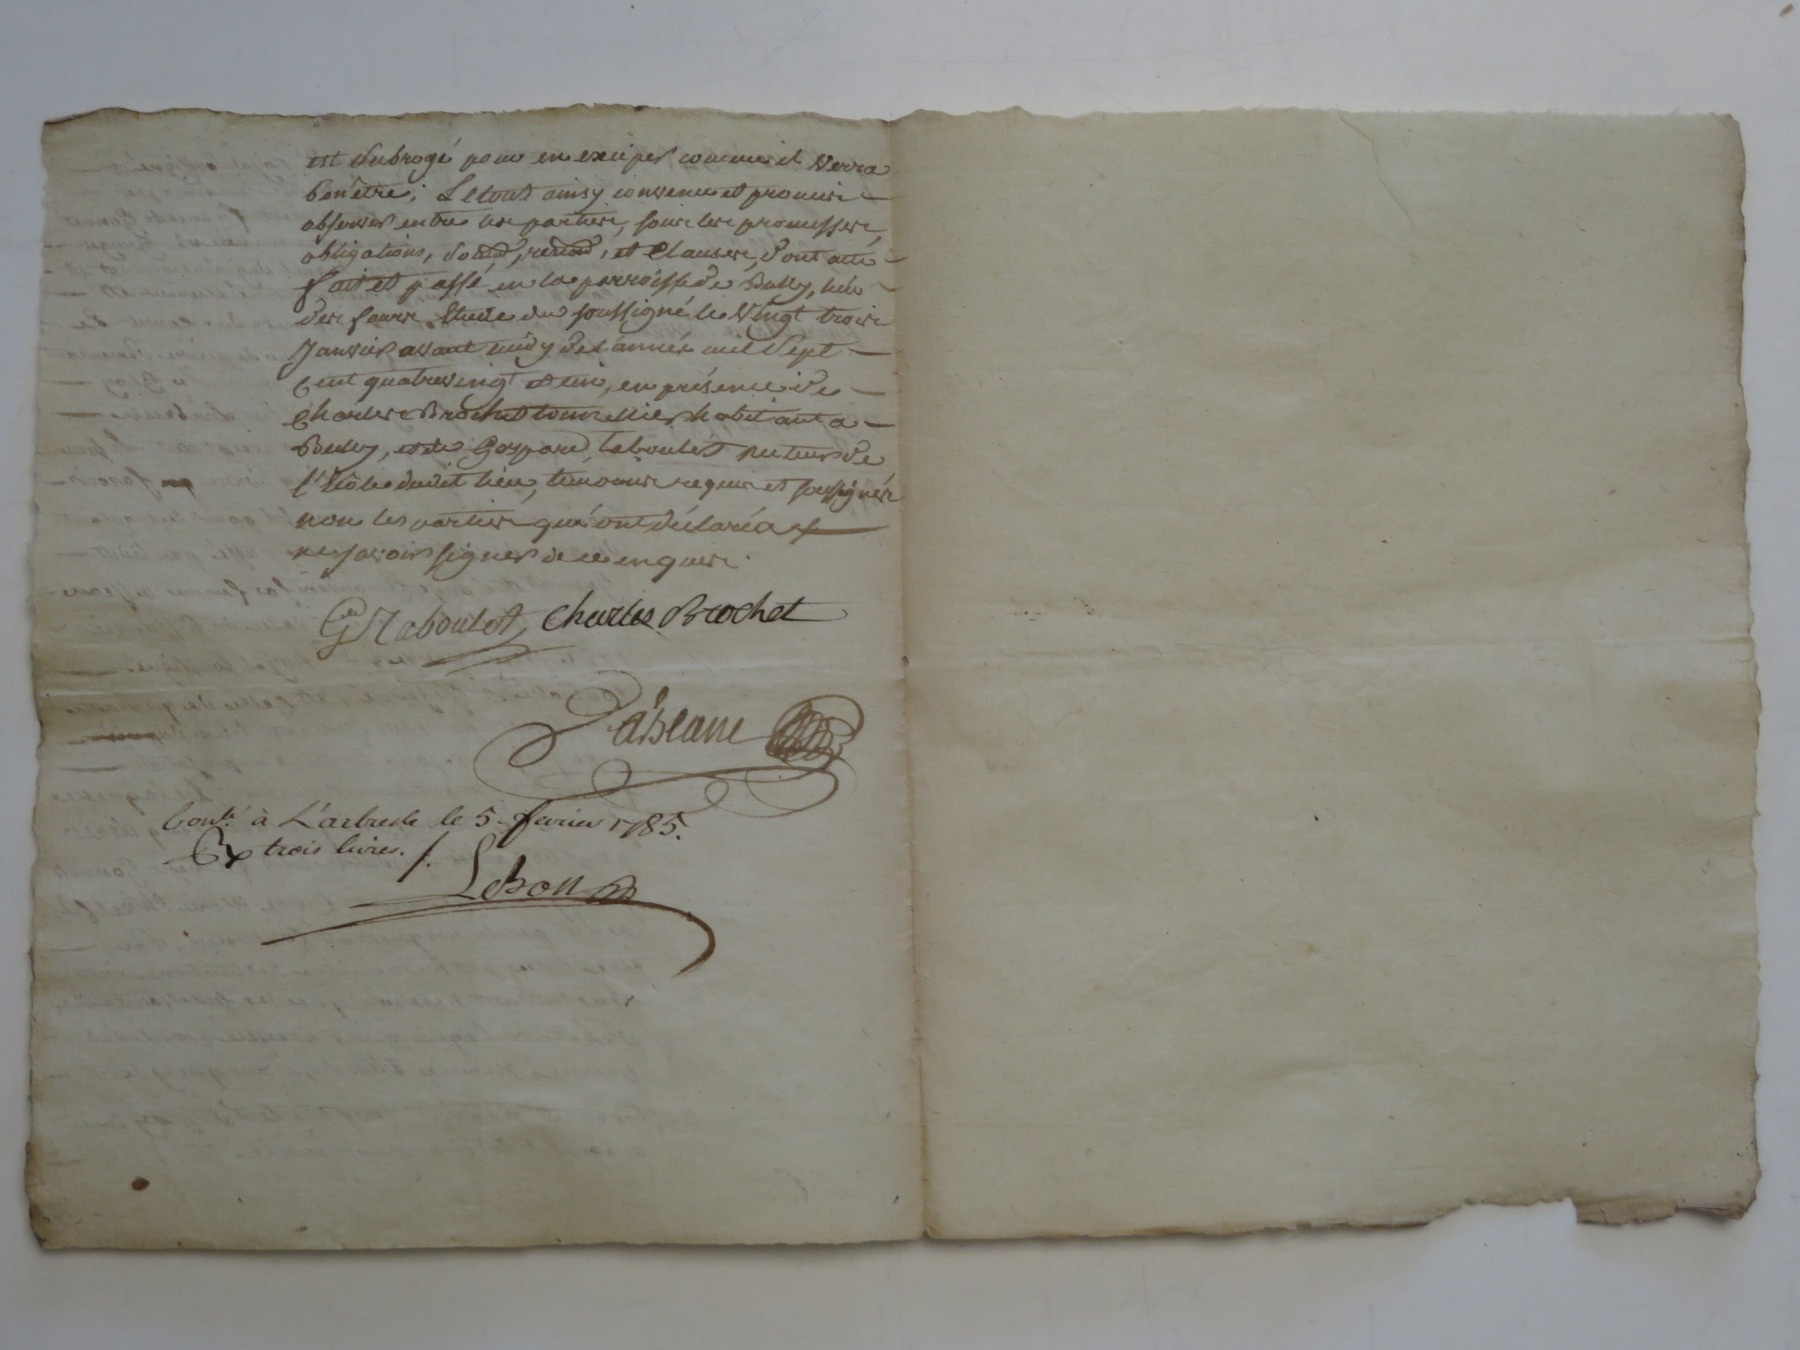 est Subrogé pour en exciper comme il Verra
bon être; Le tout ainsy convenu et promis
observer entre les parties, sous les promesses,
obligations, et Clauses, dont acte
fait et passé en la parroisse de Bully, lieu
des fours Etude du soussigné le Vingt trois
Janvier avant midy de l'année mil Sept
Cent quatrevingt en présence de
Charles Brochet tonnellier habitant a
Bully, et de Gaspard Taboulet Recteur de
l'Ecole dudit lieu, temoins requis et soussignés
non les parties qui ont déclaré
ne savoir signer de ce enquis.
Gd Taboulet Charles Brochet
Lablanc
Cont.é à L'arbresle le 5. fevrier 1785.
trois livres.
LeBon